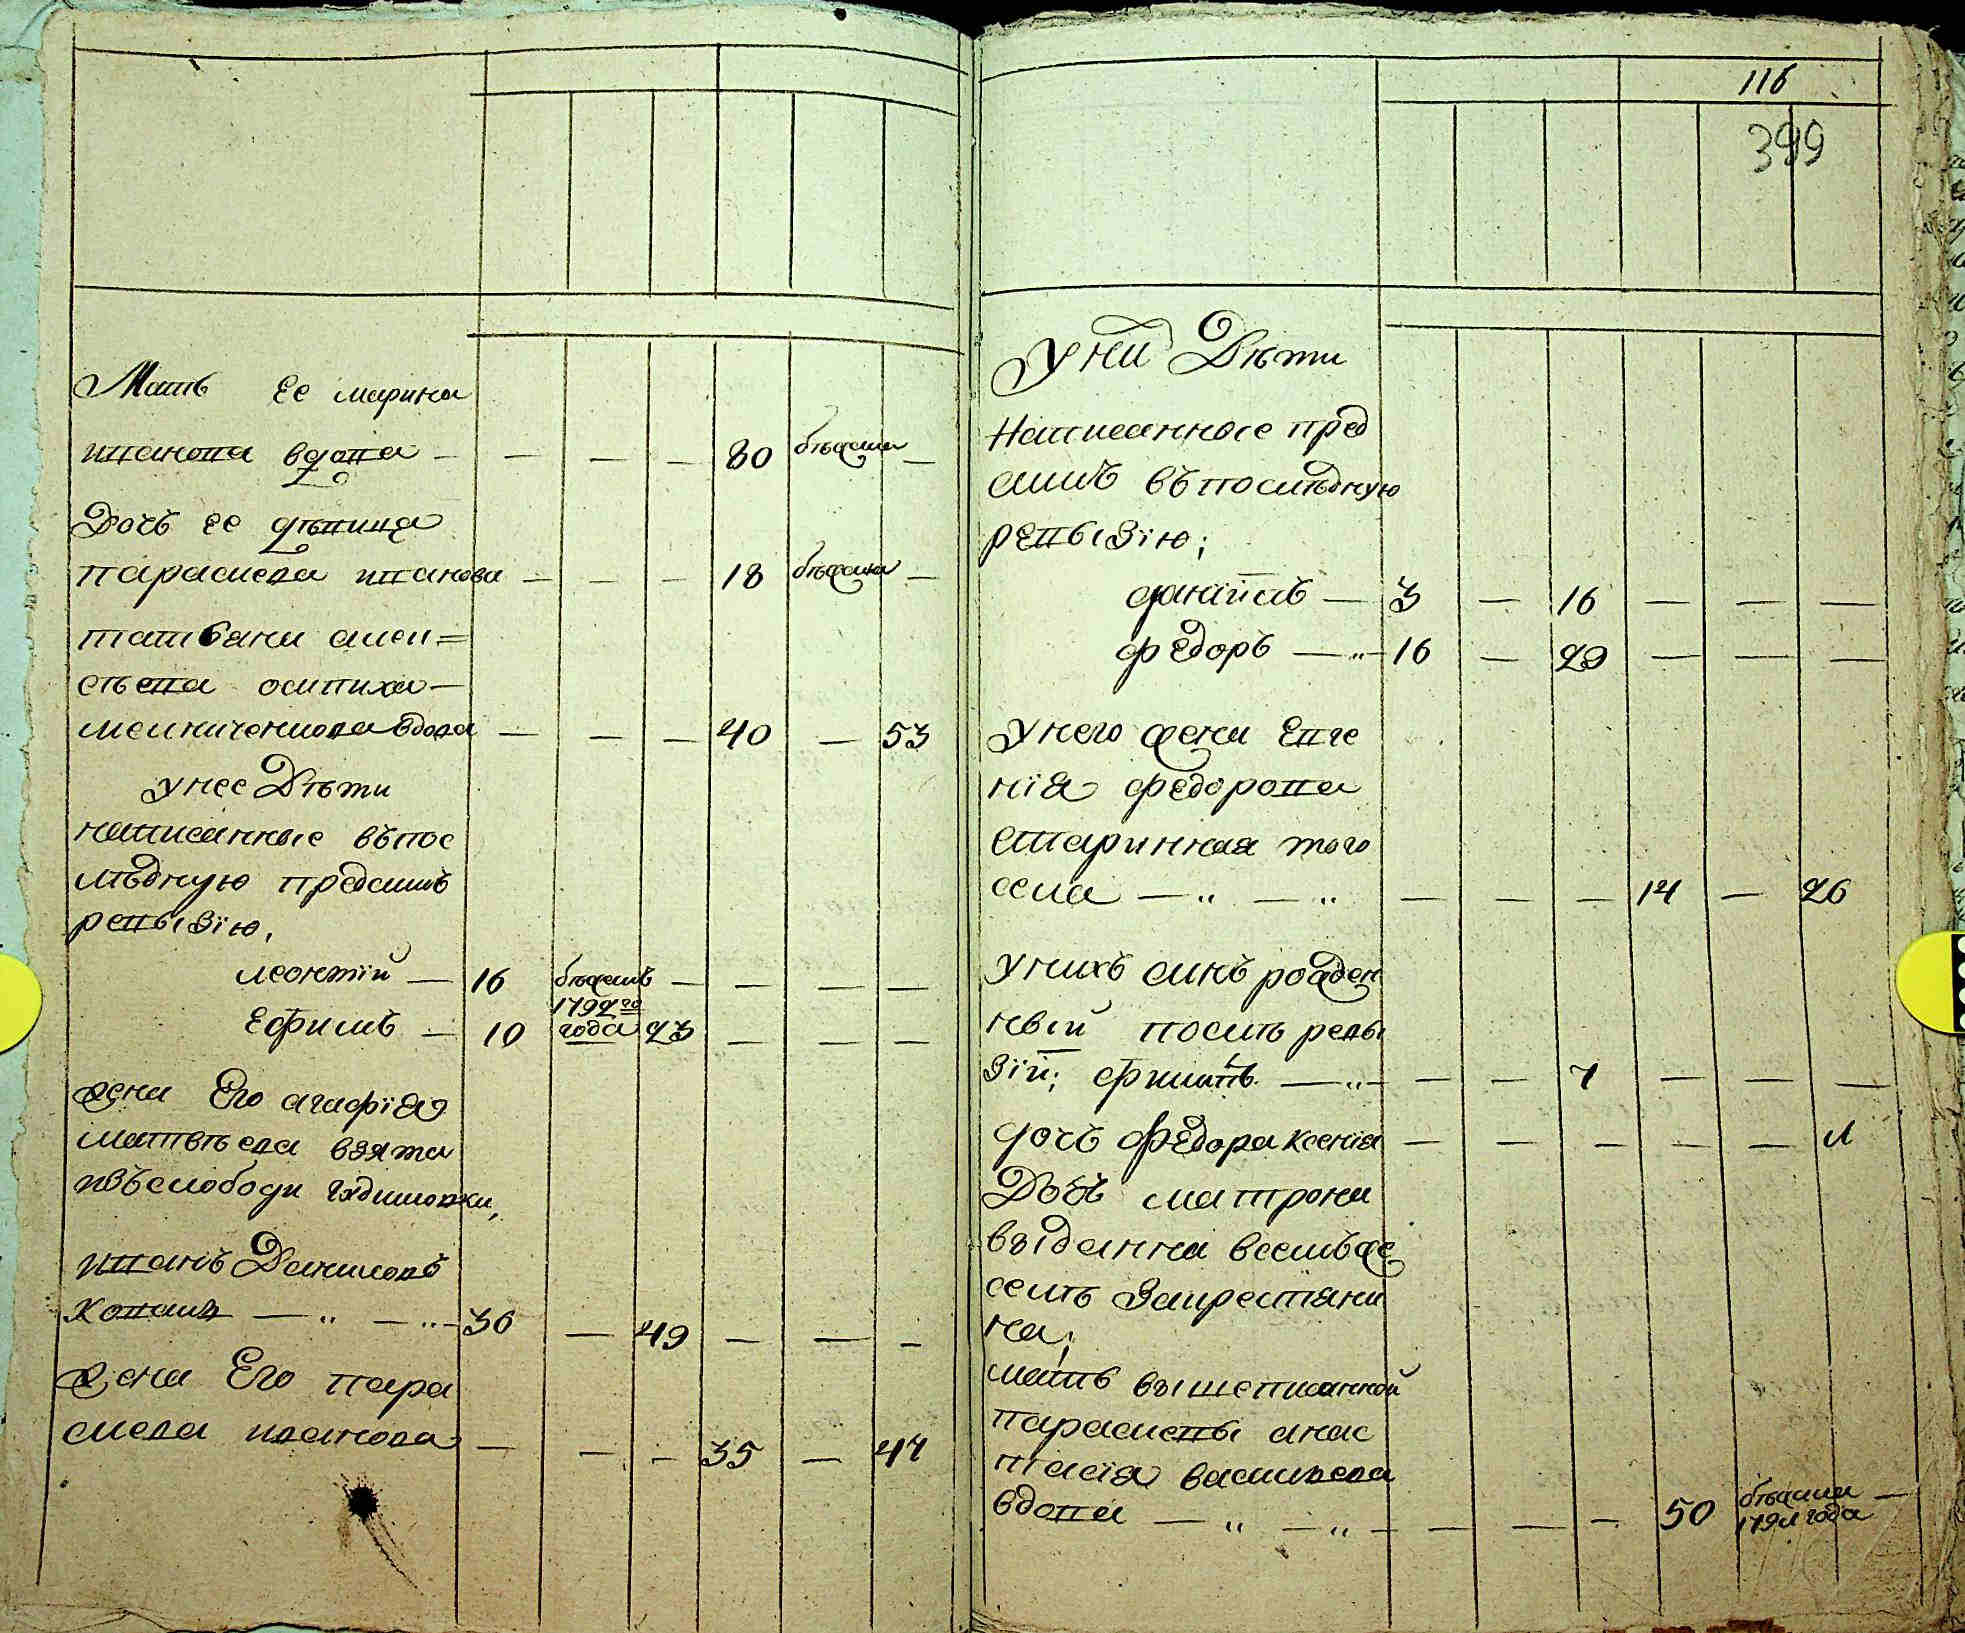 Мать ее марина
иванова вдова — — — — 80 бѣжали —
Дочь ее дѣвица
параскева иванова — — — 18 бѣжала —
татьяна алек=
сѣева осипиха —
мелниченкова вдова — — — 40 — 53
у нее Дѣти
написанные въ пос
лѣдную предъ симъ
ревызїю,
леонтїй — 16 бѣжалъ — — — —
1792го
Ефимъ — 10 года 23 — — —
жена Его агафїя
матвѣева взята
изъ слободи
иванъ Даниловъ
коваль — „ — „ — 36 — 49 — — —
жена Его пара
скева иванова — — — 35 — 47
116
399
У них Дѣти
Написанные пред
симъ въ послѣдную
ревызїю;
данїилъ — 3 — 16 — — —
федоръ — „ — 16 — 29 — — —
у него жена Евге
нїя федорова
старинная того
села — „ — „ — — — 14 — 26
у нихъ синъ рожден
ный послѣ ревы
зїи; филипъ. — „ — — — 7 — — —
дочь федора ксенїя — — — — — 11
Дочь матрона
выданна в семъ же
селѣ за крестяни
на;
мать вышеписанной
параскевы анас
тасїя василева
вдова — „ — „ — — — — 50 бѣжали —
1791 года